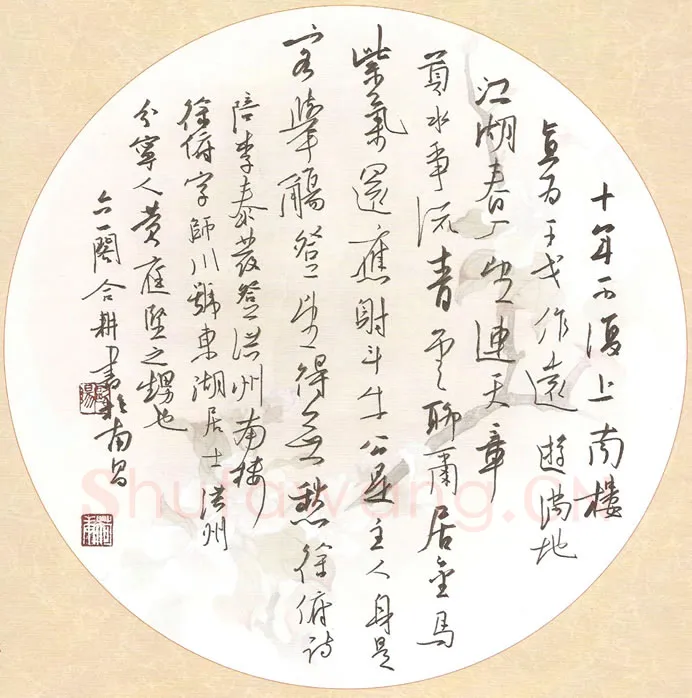 十年不復上南樓
直为干戈作遠遊满地
江湖春入望連天章
貢水争流青雲聊爾居金馬
紫氣還應射斗牛公是主人身是
客舉觴登望得無愁徐俯詩
陪李泰發登洪州南樓
徐俯字師川號東湖居士洪州
分寧人黄庭堅之甥也
六一閣合耕书於南昌
Shufawang.CN